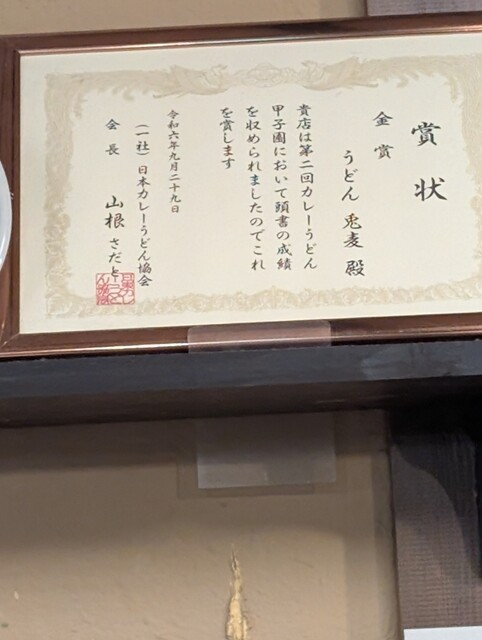 賞状
金賞
うどん 兎麦 殿
貴店は第二回カレーうどん
甲子園において頭書の成績
を収められましたのでこれ
を賞します
令和六年九月二十九日
(一社)日本カレーうどん協会
会長 山根さだと